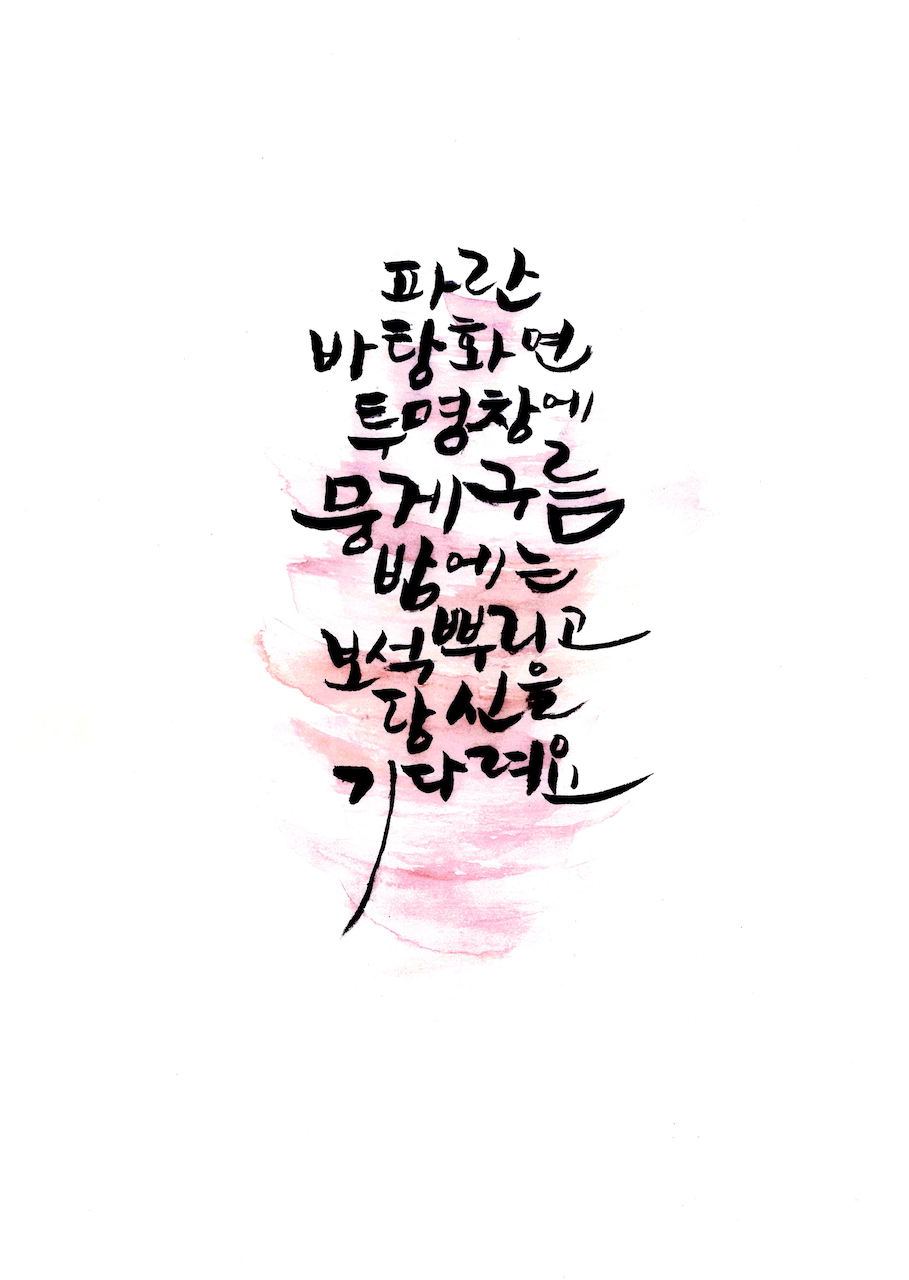 파란
바탕화면
투명창에
뭉게구름
밤에는
보석 뿌리고
당신을
기다려요